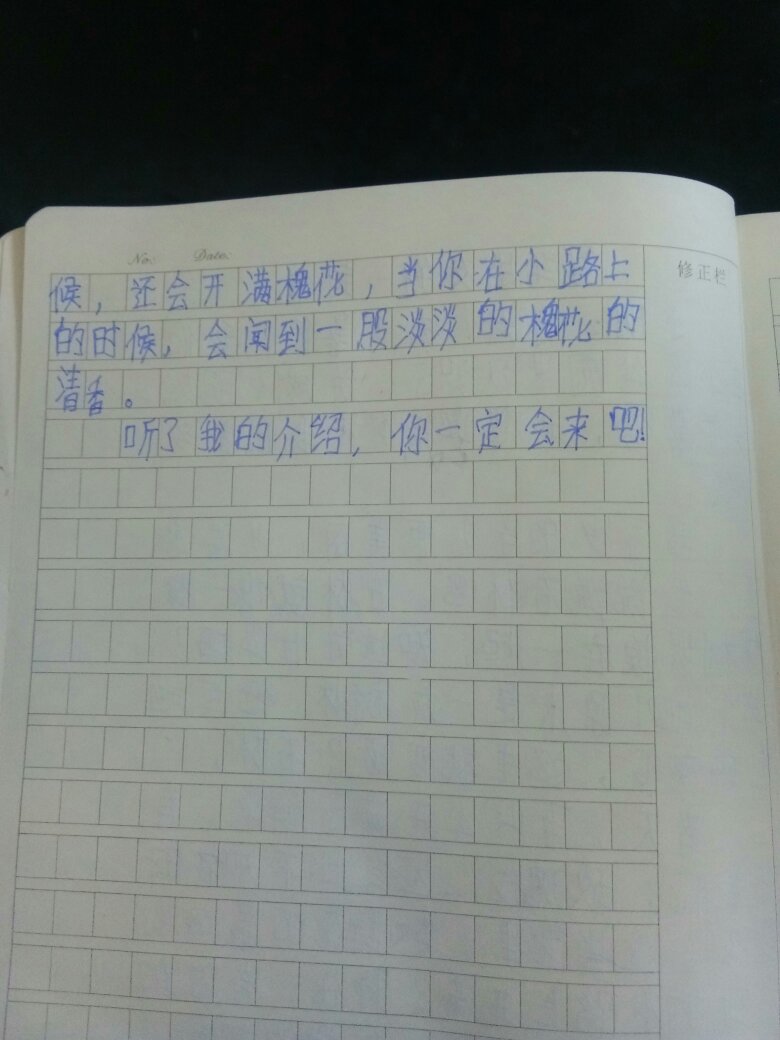 No. Date.
修正栏
候，还会开满槐花，当你在小路上
的时候，会闻到一股淡淡的槐花的
清香。
听了我的介绍，你一定会来吧！